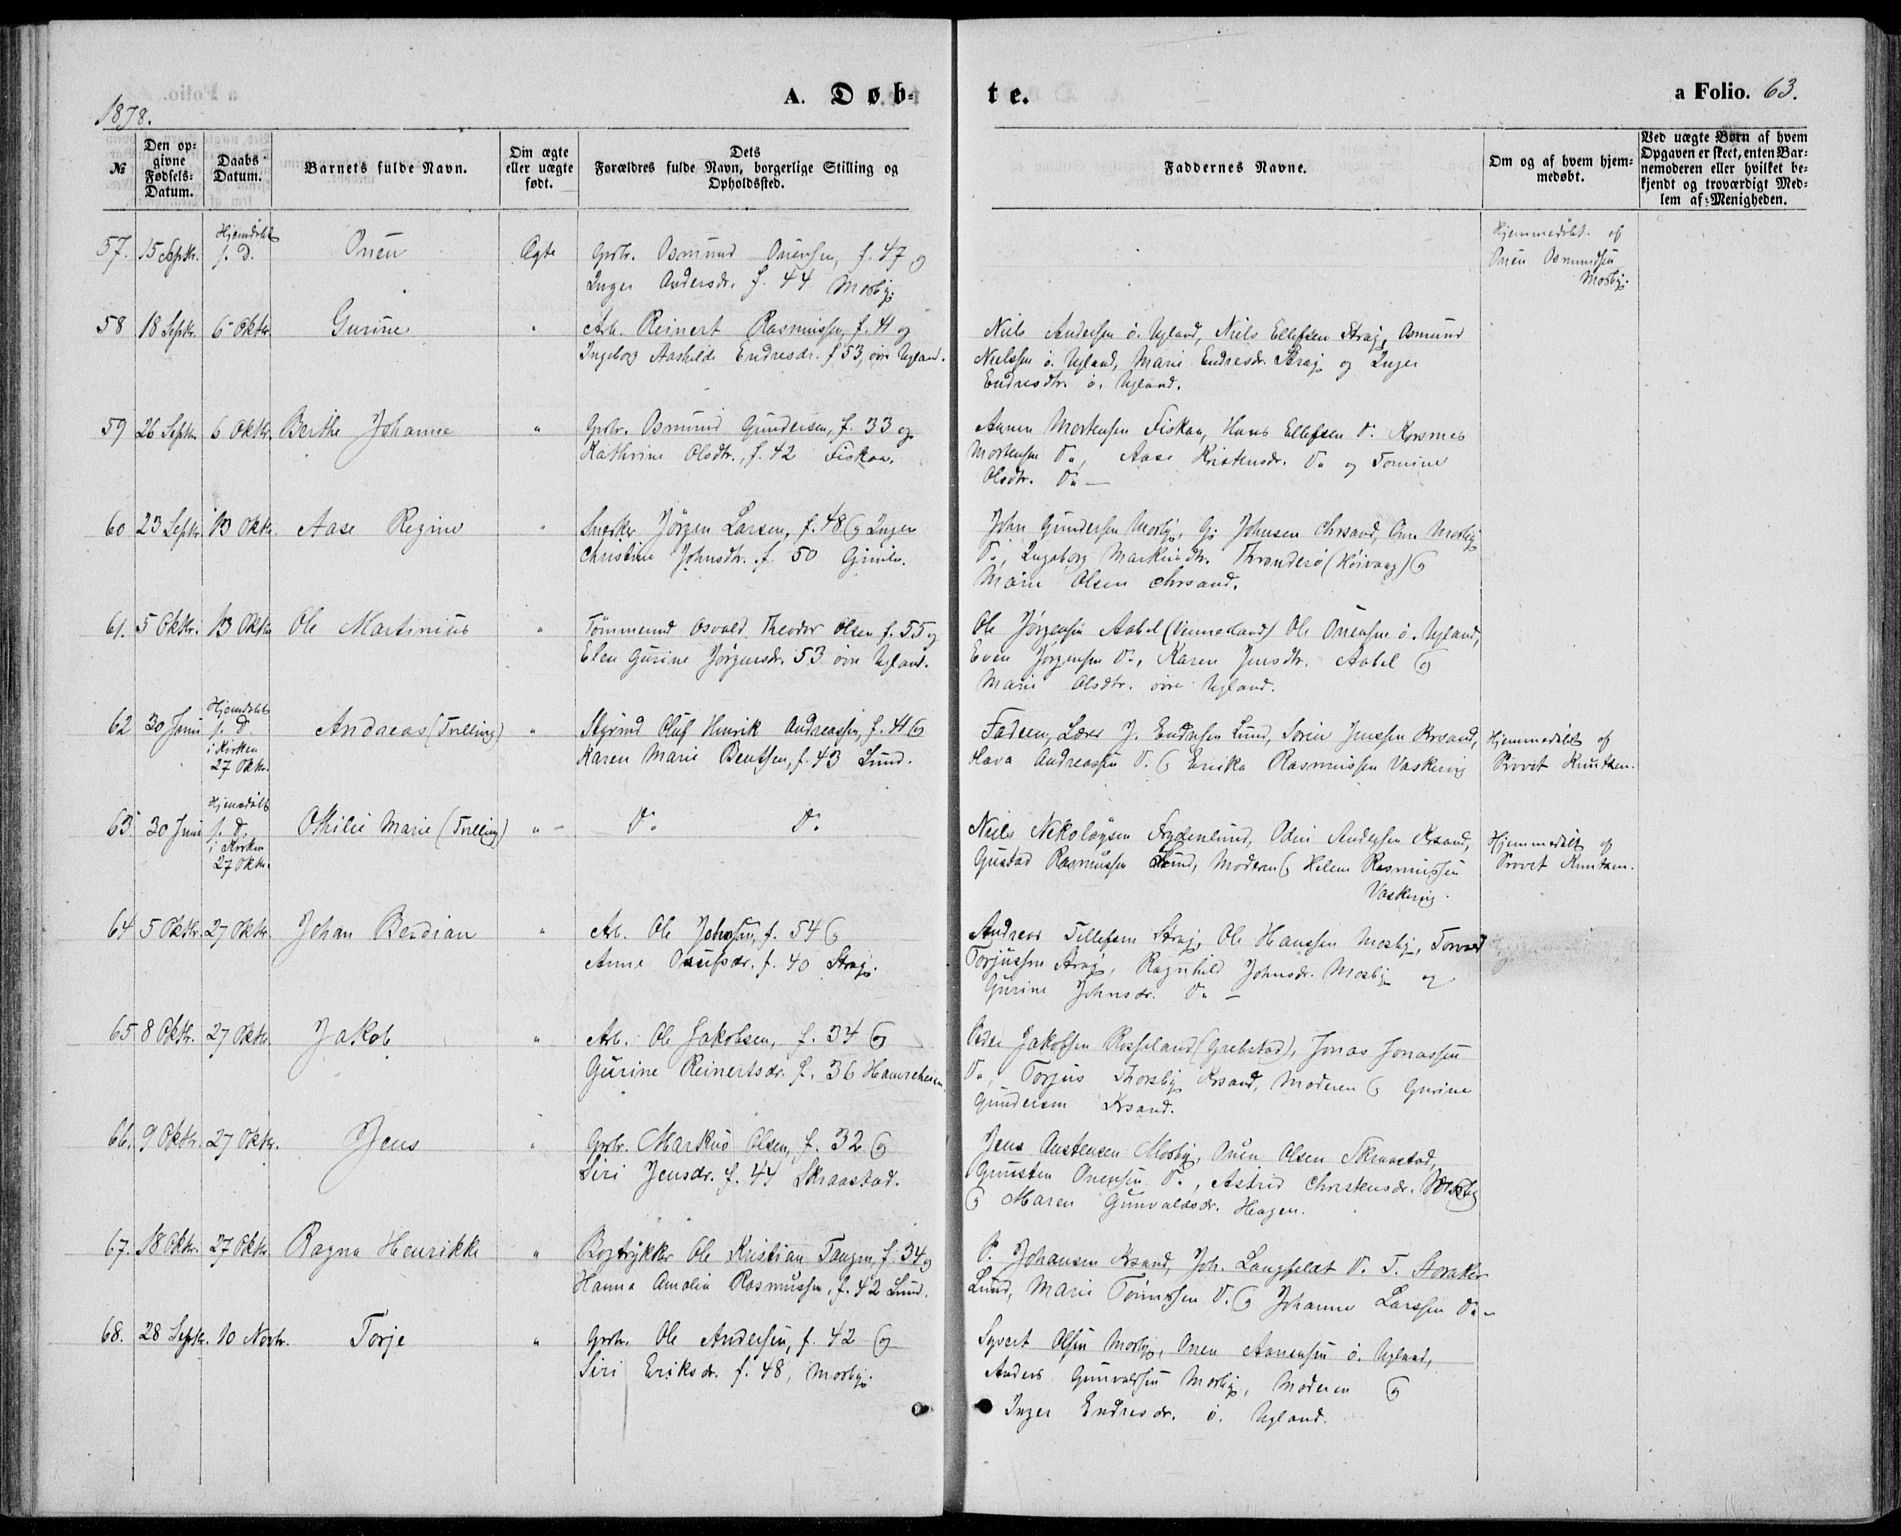 1878.
A. Døb-
te.
a Folio. 63.
№
Den op-
givne
Fødsels-
Datum.
Daabs
Datum.
Barnets fulde Navn.
Om ægte
eller uægte
født.
Dets
Forældres fulde Navn, borgerlige Stilling og
Opholdssted.
Faddernes Navne.
Om og af hvem hjem-
medøbt.
Ved uægte Børn af hvem
Opgaven er skeet, enten Bar-
nemoderen eller hvilket be-
kjendt og troværdigt Med-
lem af Menigheden.
57. 15 Septr. Hjemdøbt
s. D. Onen Ægte Grbr. Osmund Onensen, f. 47 og
Inger Andersdr. f. 44 Mosby.
Hjemmedøbt af
Onen Osmundsen
Mosby.
58 18 Septr. 6 Oktr. Gurine " Arb. Reinert Rasmussen, f. 41 og
Ingeborg Aashilde Endresdr. f 53, øvre Ugland.
Niels Andersen ö. Ugland, Niels Ellefsen Strag, Osmund
Nielssen ö. Ugland, Marie Endresdr. Strag og Inger
Endresdtr. ö. Ugland.
59 26 Septr. 6 Oktr. Berthe Johanne " Grbr. Osmund Gundersen, f. 33 og
Kathrine Olsdtr., f. 42 Fiskaa.
Aanen Mortensen Fiskaa, Hans Ellefsen Do. Korsmes
Mortensen Do, Aase Kristensdr. Do og Tomine
Olsdtr. Do —
60 23 Septr. 13 Oktr. Aase Regine " Snedker Jörgen Larsen, f. 48 og Inger
Christine Johnsdtr. f. 50 Gimle.
John Gundersen Mosby, G. Johnsen Chrsand, Ane Mosby
Do, Ingeborg Markusdtr. Thronderö (Höivaag) og
Marie Olsen Chrsand.
61. 5 Oktr. 13 Oktr. Ole Martinius " Tömmermd Osvald Theodor Olsen f. 55 og
Elen Gurine Jörgensdr. 53 övre Ugland.
Ole Jörgensen Aabel (Vennesland) Ole Onensen ö. Ugland,
Even Jörgensen Do, Karen Jensdtr. Aabel og
Marie Olsdtr. övre Ugland.
62 30 Juni Hjemdøbt
s. D.
i Kirken
27 Oktr. Andreas (Trilling) " Styrmd Oluf Henrik Andreassen, f. 41 og
Karen Marie Bentsen, f. 43 Lund.
Faderen, Lærer J. Endresen Lund, Sörine Jenssen Krsand,
Hava Andreassen Do. og Enrika Rasmussen Vaskerig
Hjemmedøbt af
Provst Knutzen.
63. 30 Juni Hjemdøbt
s. D.
i Kirken
27 Oktr. Othilie Marie (Trilling) " — Do Do
Niels Nikolaysen Frydenlund, Odin Andersen Krsand,
Gustad Rasmussen Lund, Moderen og Helene Rasmussen
Vaskerig.
Hjemmedøbt af
Provst Knutzen.
64 5 Oktr. 27 Oktr. Johan Berdian " Arb. Ole Johnsen, f. 54 og
Anne Onensdr. f. 40 Strag.
Andreas Tellefsen Strag, Ole Hanssen Mosby, Torvald
Torjussen Strag, Ragnhild Johnsdr. Mosby og
Gurine Johnsdr. Do —
65 8 Oktr. 27 Oktr. Jakob " Arb. Ole Jakobsen, f. 34 og
Gurine Reinertsdr. f. 36 Hamreheien.
Peder Jakobsen Rosseland (Grebstad), Jonas Jonassen
Do, Torjus Thorsby Krsand, Moderen og Gurine
Gundersen Krsand.
66. 9 Oktr. 27 Oktr. Jens " Grbr. Markus Olsen, f. 32 og
Siri Jensdr. f. 44 Skraastad.
Jens Austensen Mosby, Onen Olsen Skraastad,
Gunsten Onensen Do, Astrid Christensdr. Mosby
og Maren Gunvaldsdr. Hagen.
67. 18 Oktr. 27 Oktr. Ragna Henrikke " Bogtrykker Ole Kristian Tangen f. 34 og
Hanna Amalia Rasmussen, f. 42 Lund.
P. Johansen Krsand, Joh. Langfeldt Do. T. Storaker
Lund, Marie Tönnesen Do. og Johanne Larssen Do —
68. 28 Septr. 10 Novbr. Torje " Grbr. Ole Andersen, f. 42 og
Siri Eriksdr. f. 48, Mosby.
Syvert Olsen Mosby, Onen Aanensen ö. Ugland,
Anders Gunvaldsen Mosby, Moderen og
Inger Endresdr. ö. Ugland.